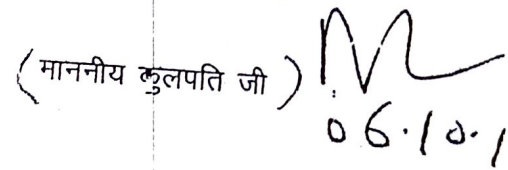 (माननीय कुलपति जी)
06.10.1